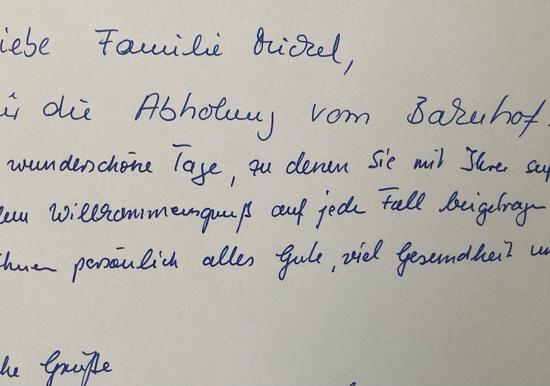 iebe Familie Mickel,
ür die Abholung vom Bahnhof.
wunderschöne Tage, zu denen Sie mit Ihrer
dem Willkommensgruß auf jede Fall beigetragen
Ihnen persönlich alles Gute, viel Gesundheit un
che Grüße